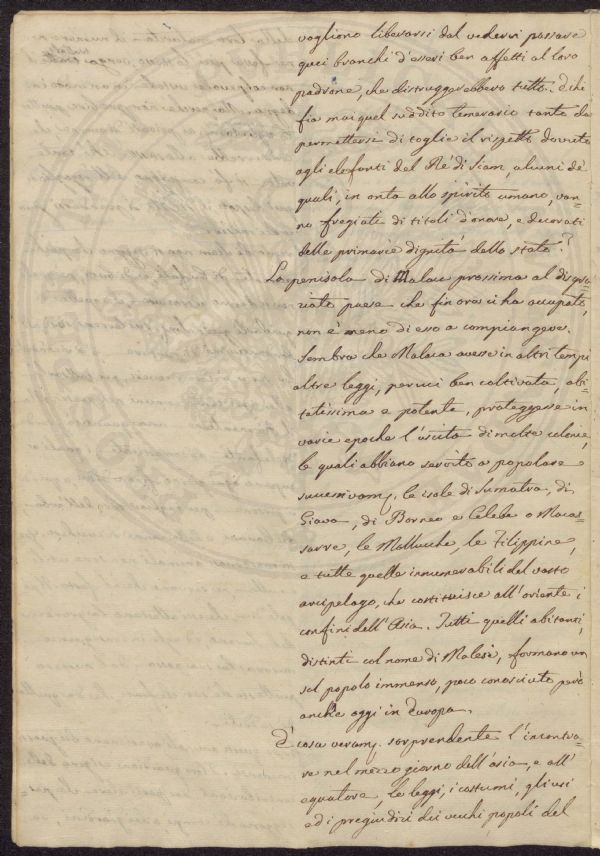 vogliono liberarsi dal vedersi passare
quei branchi d'esseri ben affetti al loro
padrone, che distruggerebbero tutto. E chi
fia mai quel suddito temerario tanto da
permettersi di toglier il rispetto dovuto
agli elefanti del Rè di Siam, alcuni de'
quali, in onta allo spirito umano, van-
no fregiati di titoli d'onore, e decorati
delle primarie dignità dello stato?
La penisola di Malac prossima al disgra-
ziato paese che fin ora ci ha occupato,
non è meno di esso a compiangere.
Sembra che Malaca avesse in altri tempi
altre leggi, per cui ben coltivata, abi-
tatissima e potente, proteggesse in
varie epoche l'uscita di molte colonie,
le quali abbiano servito a popolare
successivam. le isole di Sumatra, di
Giava, di Borneo e Celebe o Macas-
sarre, le Mollucche, le Filippine,
e tutte quelle innumerabili del vasto
arcipelago, che costituisce all'oriente i
confini dell'Asia. Tutti quelli abitanti,
distinti col nome di Malesi, formano un
sol popolo immenso, poco conosciuto però
anche oggi in Europa.
È cosa veram. sorprendente l'incontra-
re nel mezzo giorno dell'asia, e all'
equatore, le leggi, i costumi, gli usi
ed i pregiudizi dei vecchi popoli del